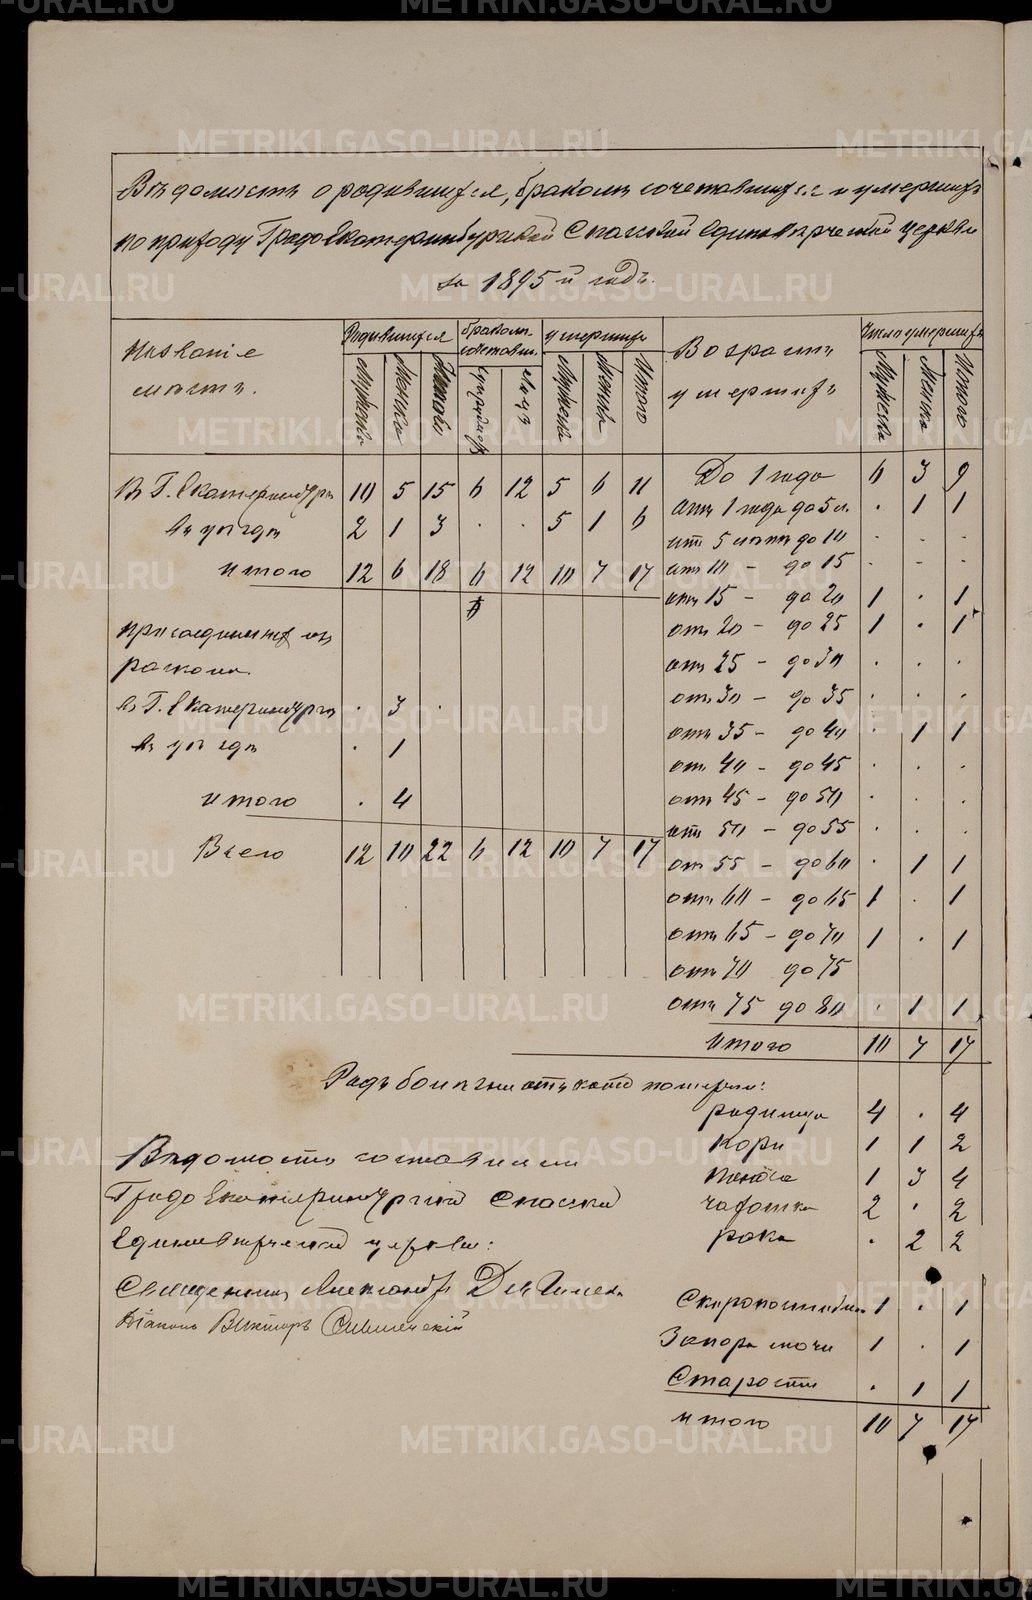 Ведомость о родившихся, браком сочетавшихся и умерших
по приходу Градо Екатеринбургской Спасской единоверческой церкви
за 1895 й годъ.
Названіе местъ.
Родившихся
браком сочетавш.
умерших
Возрастъ умершихъ
Число умершихъ
Мужеска Женска Итого Супружес Лицъ Мужеска Женска Итого Мужеска Женска Итого
Въ Г. Екатеринбурге 10 5 15 6 12 5 6 11
въ уезде 2 1 3 . . 5 1 6
итого 12 6 18 6 12 10 7 17
присоединенных из
раскола
въ Г. Екатеринбурге . 3 .
въ уезде . 1
итого . 4
Всего 12 10 22 6 12 10 7 17
До 1 года 6 3 9
отъ 1 года до 5 л. . 1 1
отъ 5 летъ до 10 . . .
отъ 10 - до 15 . . .
отъ 15 - до 20 1 . 1
отъ 20 - до 25 1 . 1
отъ 25 - до 30 . . .
отъ 30 - до 35 . . .
отъ 35 - до 40 . 1 1
отъ 40 - до 45 . . .
отъ 45 - до 50 . . .
отъ 50 - до 55 . . .
от 55 - до 60 . 1 1
отъ 60 - до 65 1 . 1
отъ 65 - до 70 1 . 1
отъ 70 до 75
отъ 75 до 80 . 1 1
итого 10 7 17
Родъ болезни отъ коей померли:
родимца 4 . 4
Кори 1 1 2
Поноса 1 3 4
чахотка 2 . 2
рака . 2 2
Скоропостижно 1 . 1
Запора мочи 1 . 1
Старости . 1 1
итого 10 7 17
Ведомость составили
Градо Екатеринбургской Спасской
Единоверческой церкви:
Священникъ Александръ
Діаконъ Викторъ
METRIKI.GASO-URAL.RU